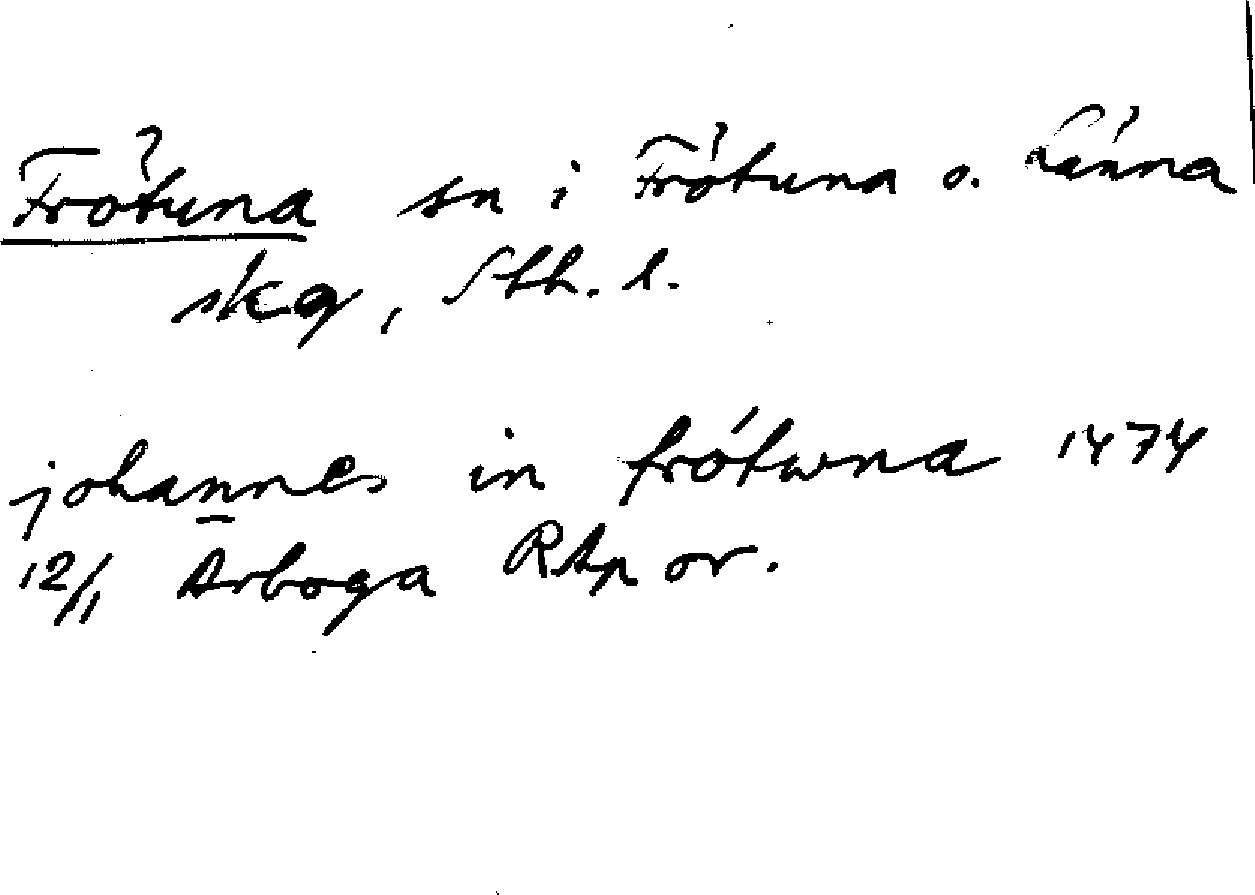 Frötuna sn i Frötuna o. Länna
skg, Sth. l.
johannes in frótwna 1474
12/1 Arboga RAp or.